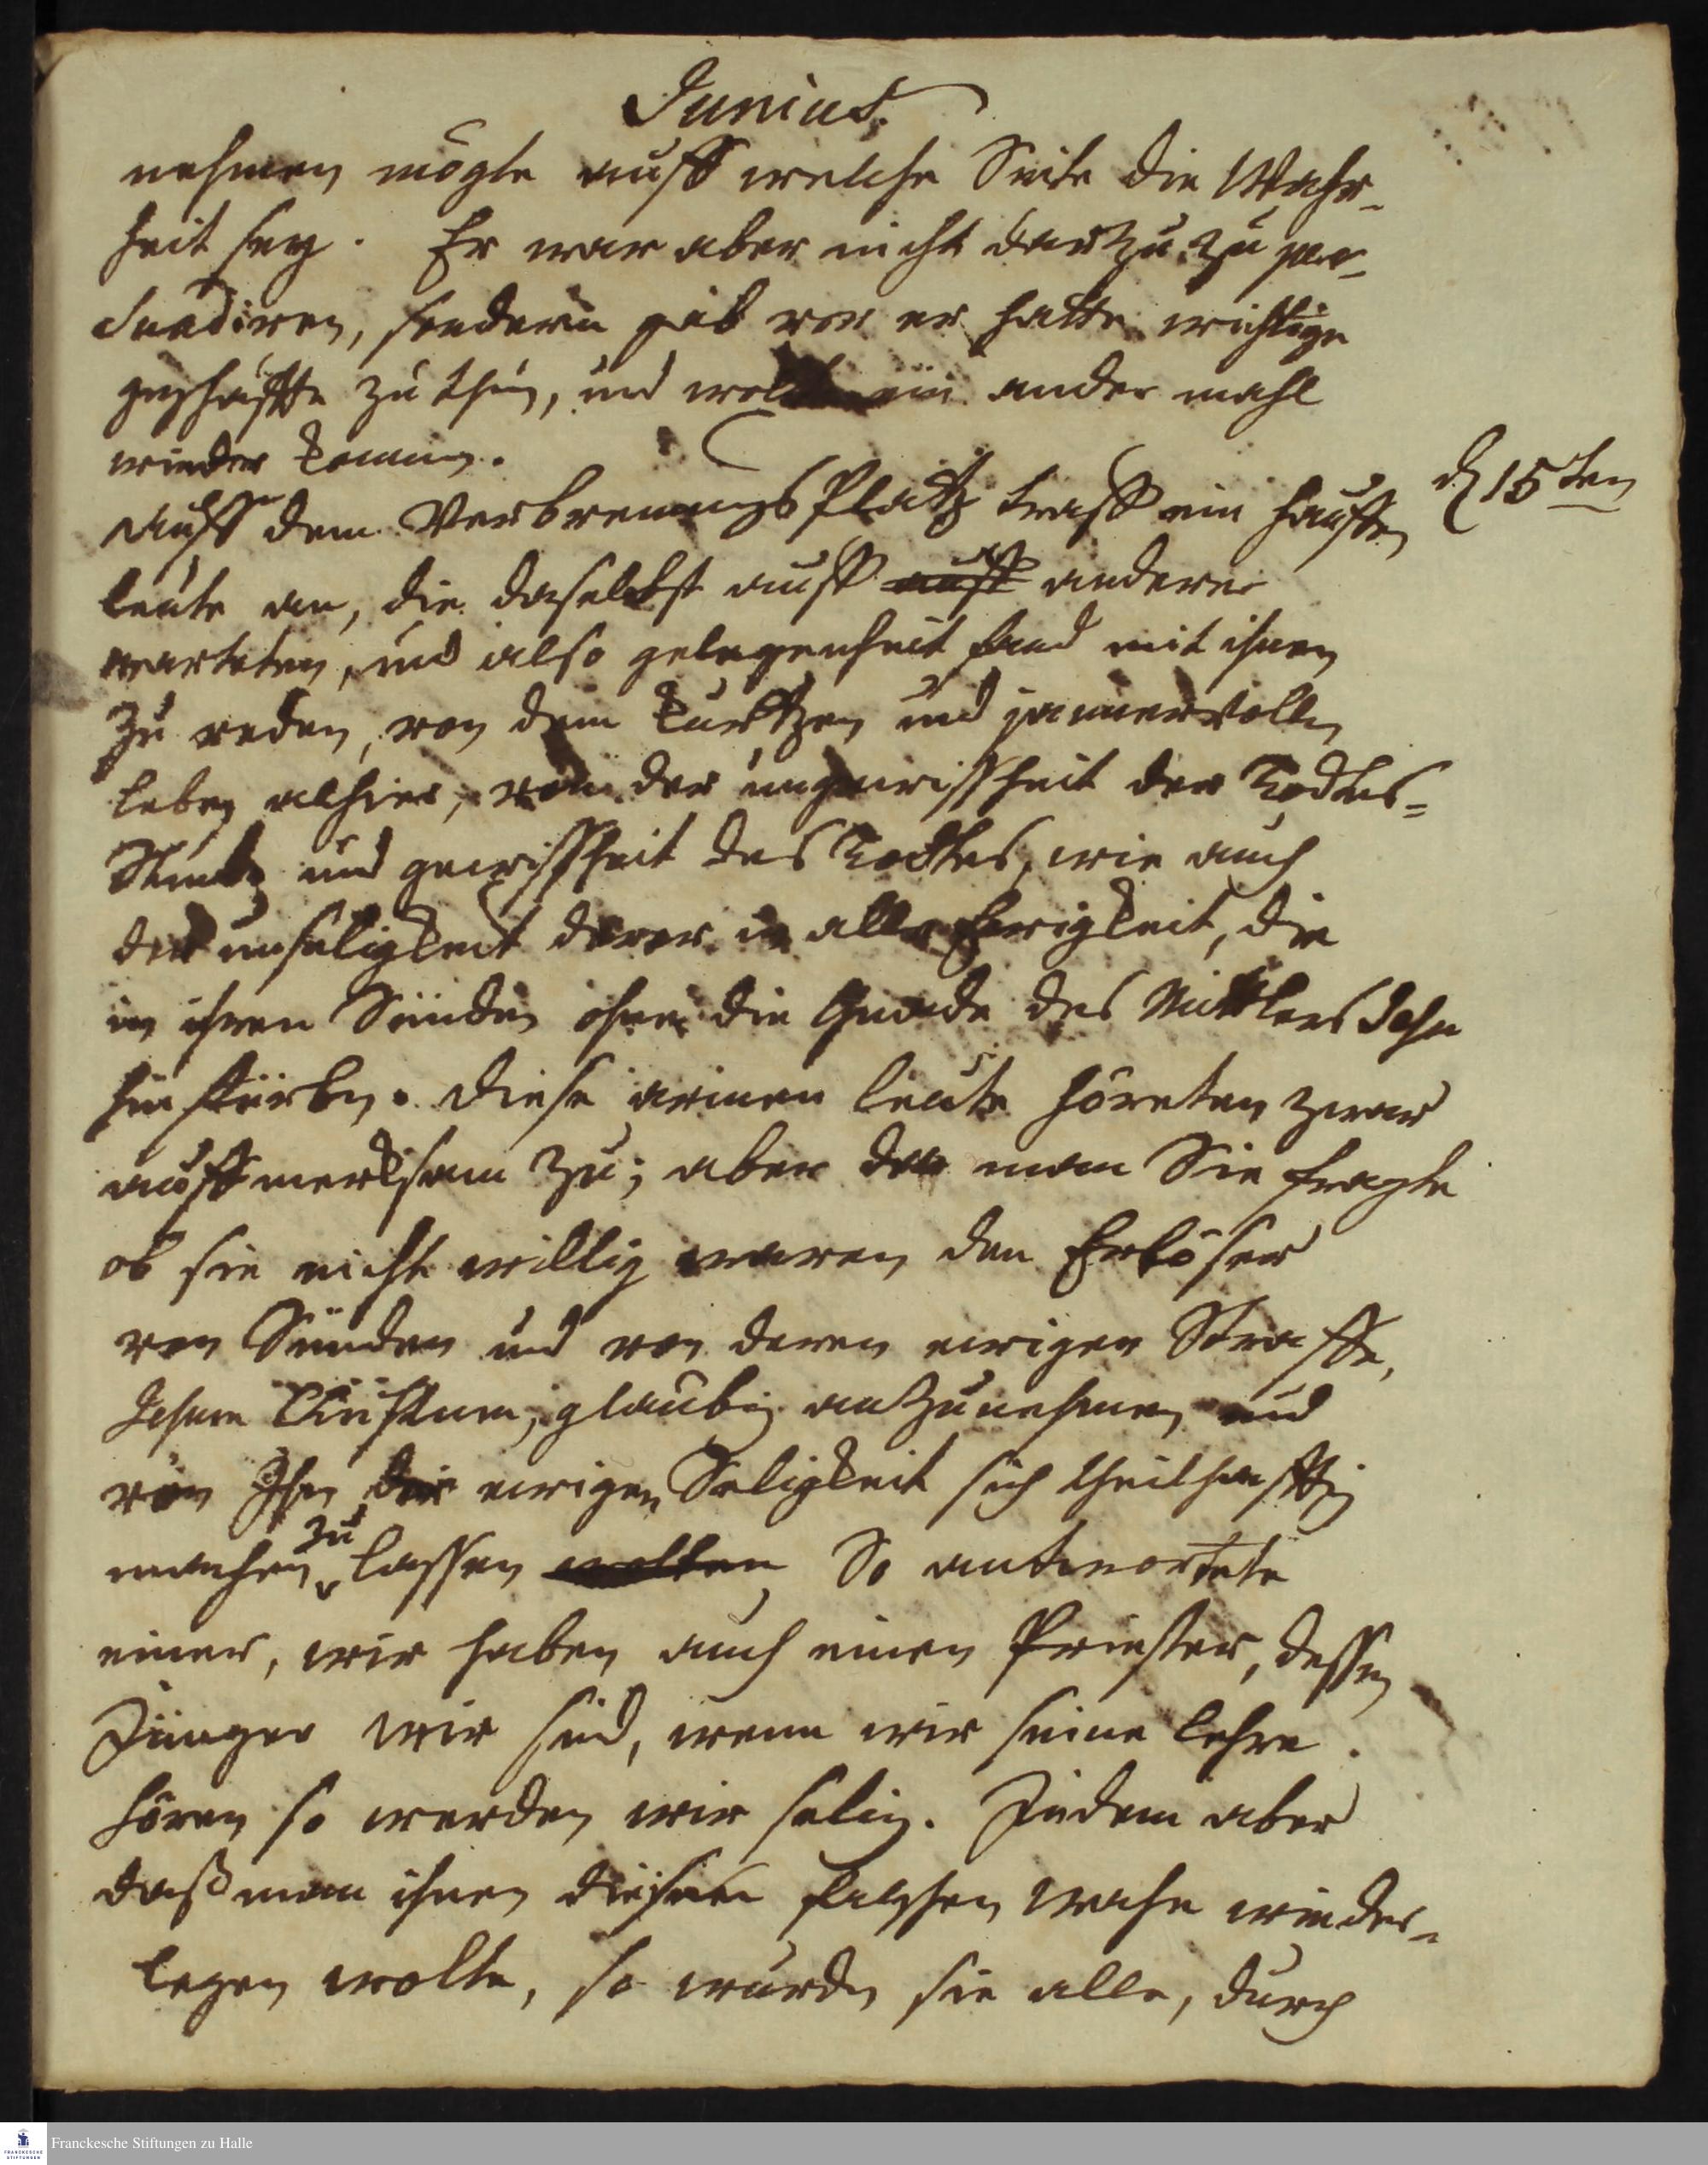 Junius.
nehmen mögte auff welche Seite die Wahr-
heit sey. Er war aber nicht darzu zu per-
suadiren, sondern gab vor er hatte wichtige
geschäffte zu thun, und wolte ein ander mahl
wieder kommen.
d 15ten
Auff dem Verbrennungs Platz traff ein hauffen
leute an, die daselbst auff auff andere
warteten, und also gelegenheit fand mit ihnen
zu reden, von dem kurtzen und jammervollen
leben alhier, von der ungewissheit der Todtes=
Stunde und gewissheit des Todtes, wie auch
der unseligkeit derer in alle Ewigkeit, die
in ihren Sünden ohne die Gnade des Mittlers Jesu
hin sterben. diese armen leute höreten zwar
auffmerksam zu; aber da man Sie fragte
ob sie nicht willig waren den Erlöser
von Sünden und von deren ewigen Straffe,
Jesum Christum, glaubig anzunehmen und
von Ihm der ewigen Seligkeit sich theilhafftig
machen zu lassen wolten So antwortete
einer, wir haben auch einen Priester, dessen
Jünger wir sind, wenn wir seine lehre
hören so werden wir selig. Indem aber
daß man ihnen diesen falschen Wahn wieder-
legen wolte, so wurden sie alle, durch
Franckesche Stiftungen zu Halle
FRANCKESCHE
STIFTUNGEN